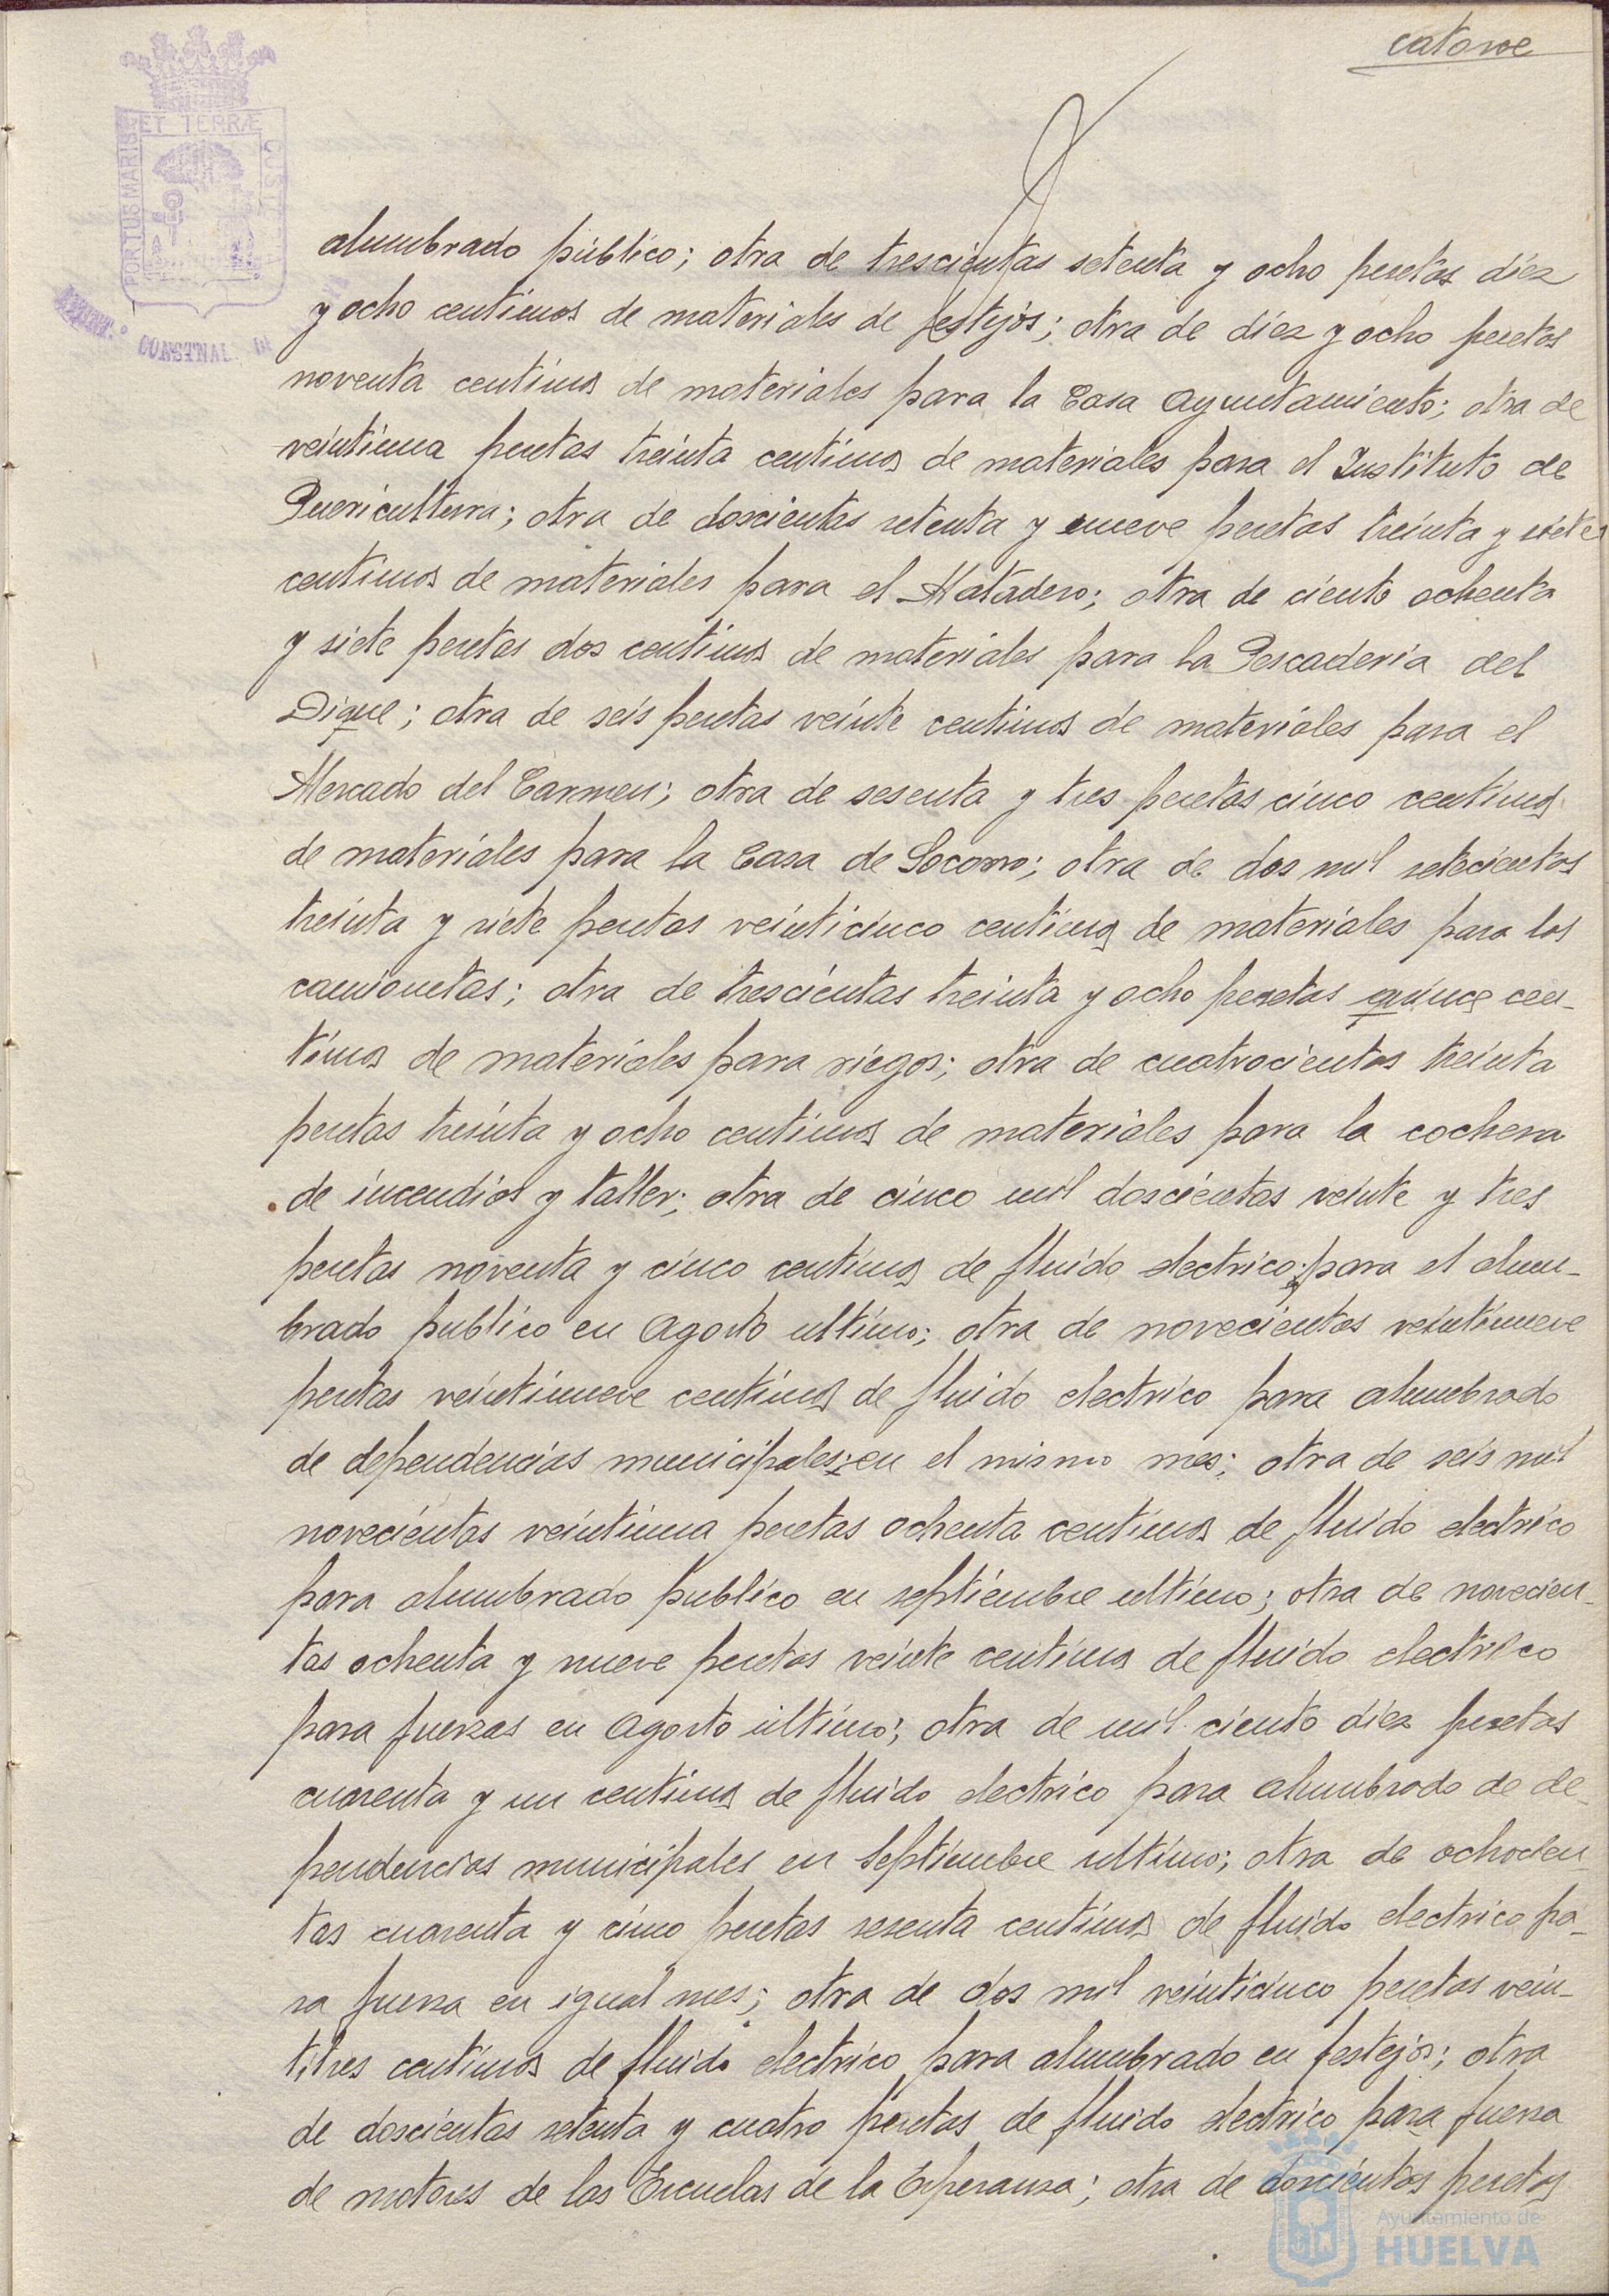 catorce
PORTUS MARIS ET TERRÆ CUSTODIA
alumbrado público; otra de trescientas setenta y ocho pesetas diez
y ocho centimos de materiales de festejos; otra de diez y ocho pesetas
noventa centimos de materiales para la Casa Ayuntamiento; otra de
veintiuna pesetas treinta centimos de materiales para el Instituto de
Puericultura; otra de doscientas setenta y nueve pesetas treinta y siete
centimos de materiales para el Matadero; otra de ciento ochenta
y siete pesetas dos centimos de materiales para la Pescaderia del
Dique; otra de seis pesetas veinte centimos de materiales para el
Mercado del Carmen; otra de sesenta y tres pesetas cinco centimos
de materiales para la Casa de Socorro; otra de dos mil setecientas
treinta y siete pesetas veinticinco centimos de materiales para las
camionetas; otra de trescientas treinta y ocho pesetas quince cen-
timos de materiales para riegos; otra de cuatrocientas treinta
pesetas treinta y ocho centimos de materiales para la cochera
de incendios y taller; otra de cinco mil doscientas veinte y tres
pesetas noventa y cinco centimos de fluido electrico para el alum-
brado publico en Agosto ultimo; otra de novecientas veintinueve
pesetas veintinueve centimos de fluido electrico para alumbrado
de dependencias municipales; en el mismo mes; otra de seis mil
novecientas veintiuna pesetas ochenta centimos de fluido electrico
para alumbrado publico en septiembre ultimo; otra de novecien-
tas ochenta y nueve pesetas veinte centimos de fluido electrico
para fuerzas en Agosto ultimo; otra de mil ciento diez pesetas
cuarenta y un centimos de fluido electrico para alumbrado de de-
pendencias municipales en Septiembre ultimo; otra de ochocien-
tas cuarenta y cinco pesetas sesenta centimos de fluido electrico pa-
ra fuerza en igual mes; otra de dos mil veinticinco pesetas vein-
titres centimos de fluido electrico para alumbrado en festejos; otra
de doscientas setenta y cuatro pesetas de fluido electrico para fuerza
de motores de las Escuelas de la Esperanza; otra de doscientas pesetas
Ayuntamiento de
HUELVA